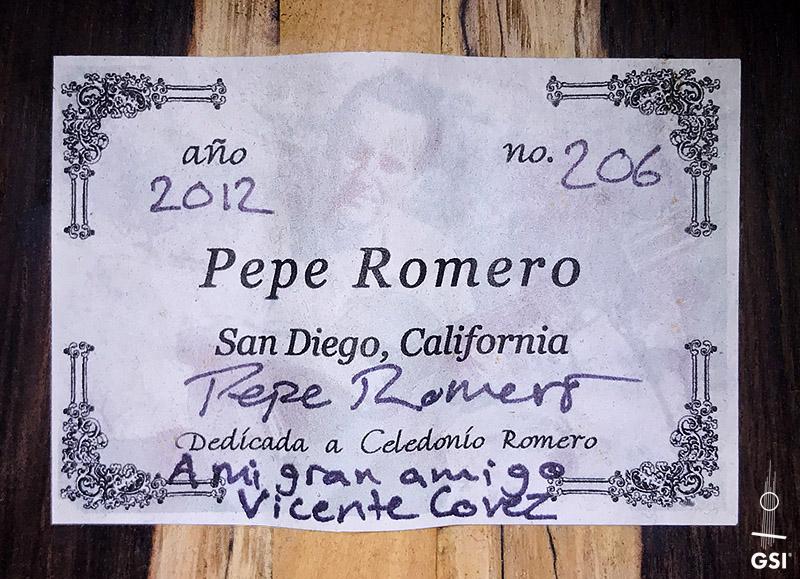 año
2012
no. 206
Pepe Romero
San Diego, California
Pepe Romero
Dedícada a Celedonío Romero
A mi gran amigo
Vicente Covez
GSI